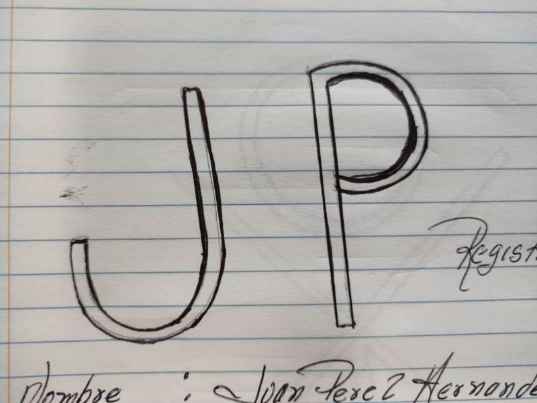 JP
Regist
Nombre : Juan Perez Hernande